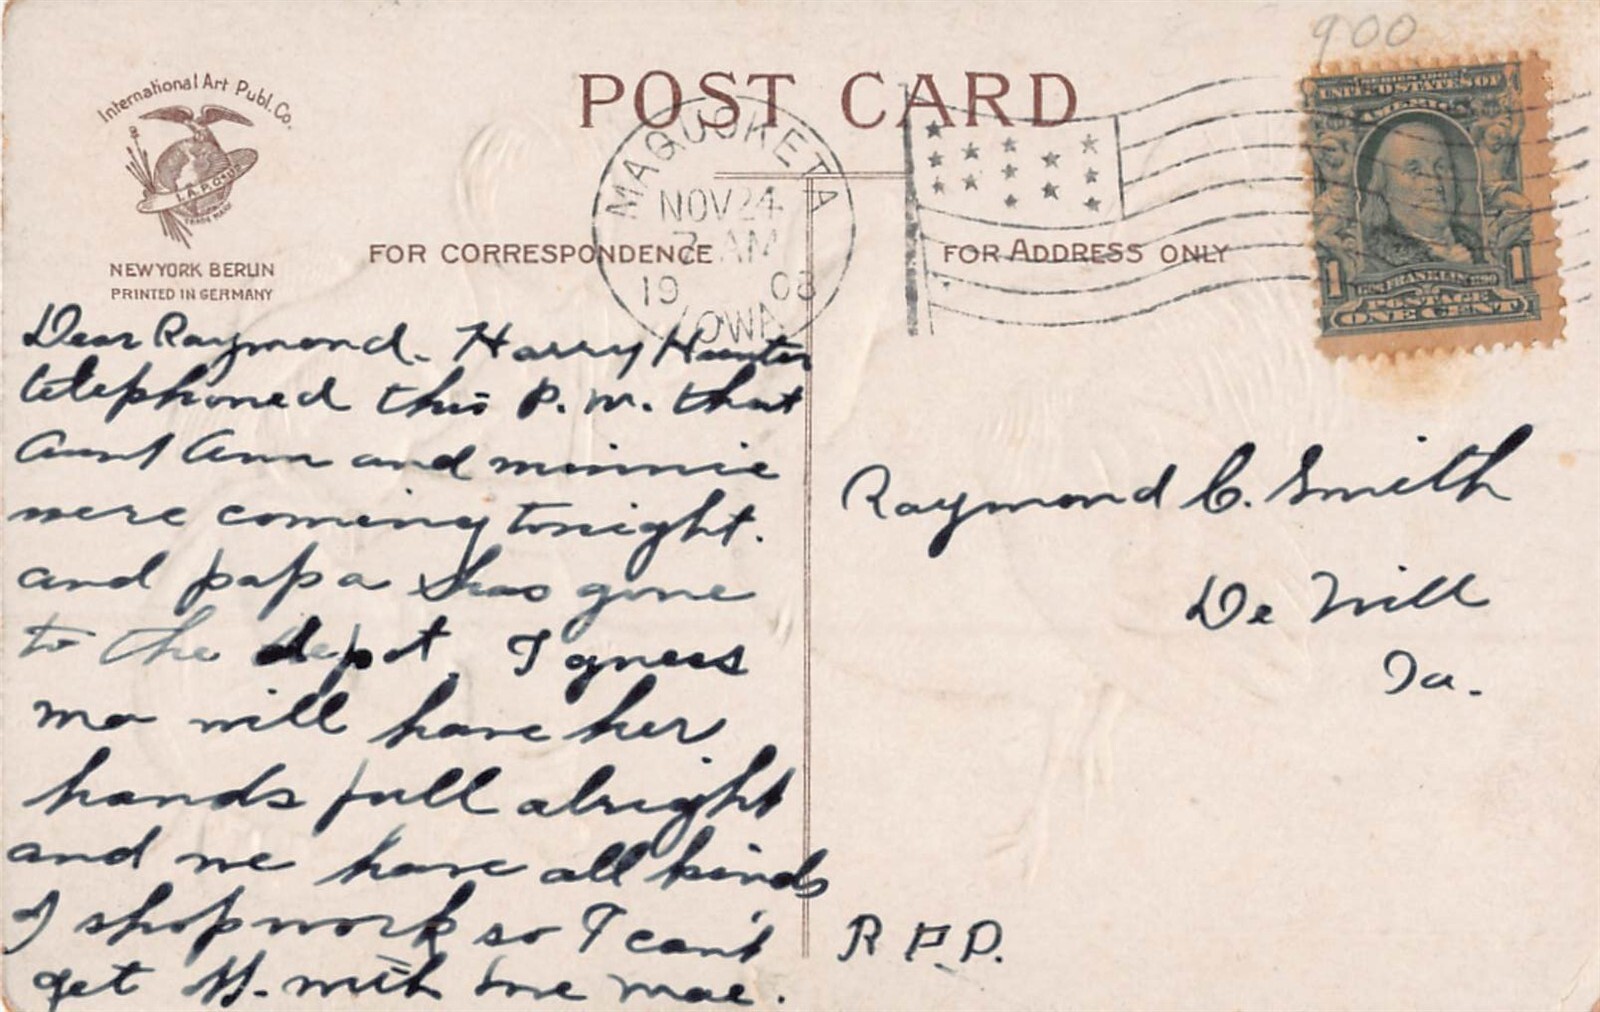 900
International Art Publ. Co.
I. A. P. Co.
TRADE MARK
NEW YORK BERLIN
PRINTED IN GERMANY
POST CARD
FOR CORRESPONDENCE
FOR ADDRESS ONLY
MAQUOKETA
NOV 24
7 AM
1908
IOWA
UNITED STATES OF
AMERICA
FRANKLIN
POSTAGE
1 1
ONE CENT
Dear Raymond. Harry Hunter
telephoned this P. M. that
Aunt Ann and minnie
were coming tonight.
and papa has gone
to the depot. I guess
ma will have her
hands full alright
and we have all kinds
of shopwork so I can't
get with me mae.
Raymond C. Smith
De Witt
Ia.
R F. D.